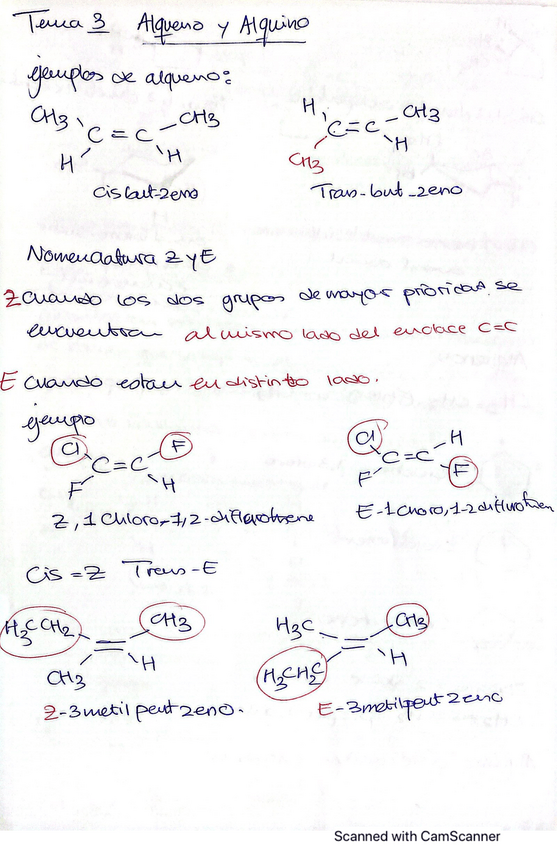 Tema 3 Alqueno y Alquino
ejemplos de alqueno:
CH3 C = C CH3 H H
H C=C CH3 CH3 H
cis but-2eno
Trans-but-2eno
Nomenclatura Z y E
Z cuando los dos grupos de mayor prioridad se
encuentran al mismo lado del enlace C=C
E cuando estan en distinto lado.
ejemplo
Cl C=C F F H
Cl C=C H F F
Z, 1 Chloro-1,2-difluorothene
E-1 choro, 1-2 difluro
Cis = Z Trans-E
H3CCH2 CH3 CH3 H
H3C CH3 H3CH2C H
Z-3metil peut 2eno.
E-3metil peut 2eno
Scanned with CamScanner